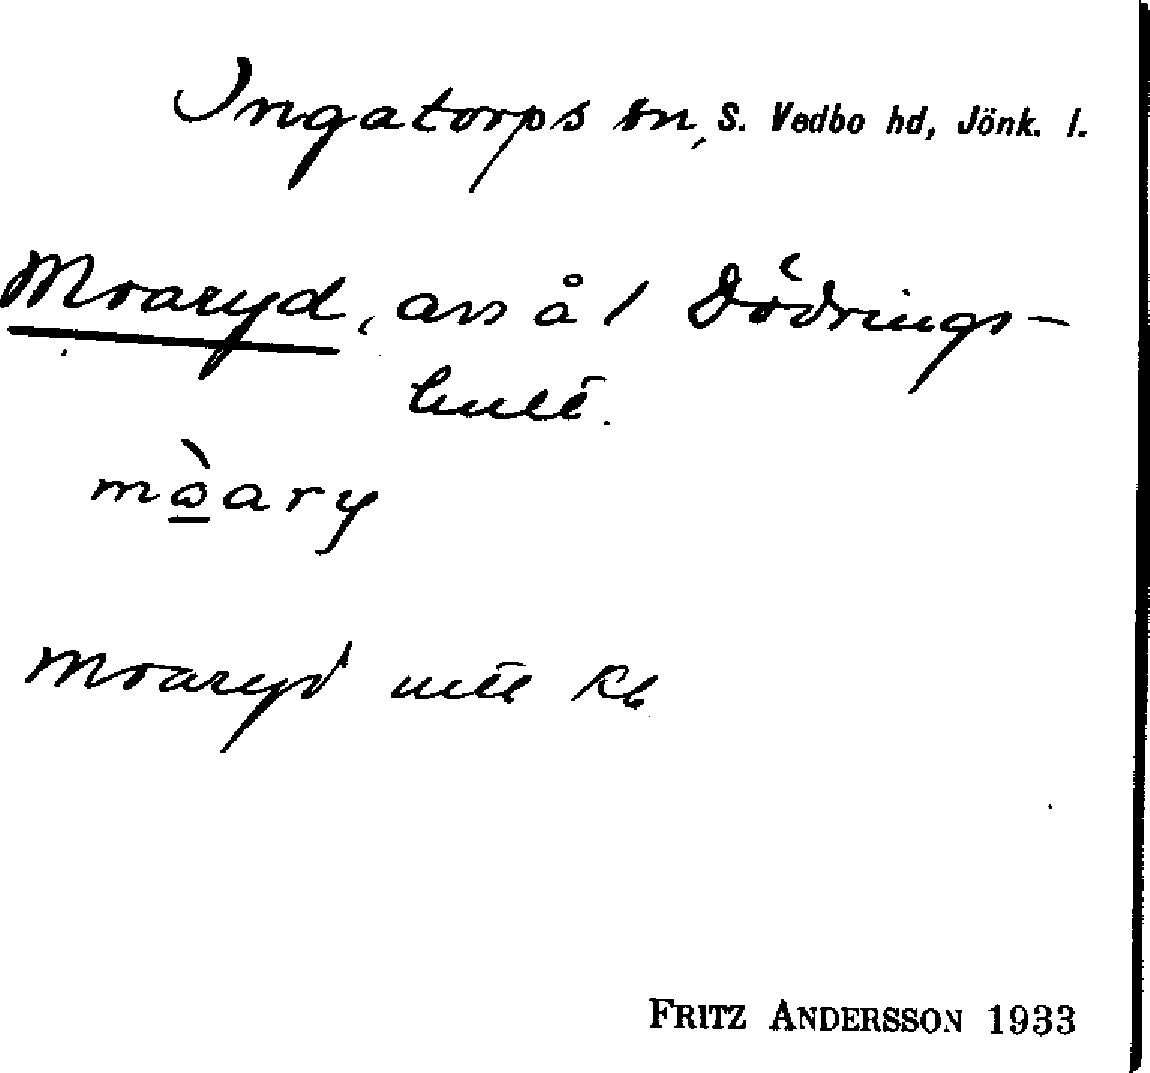 Ingatorps sn, S. Vedbo hd, Jönk. l.
Moaryd, avs å 1 Dödrings-
hult.
mòary
Moaryd utt kb
FRITZ ANDERSSON 1933